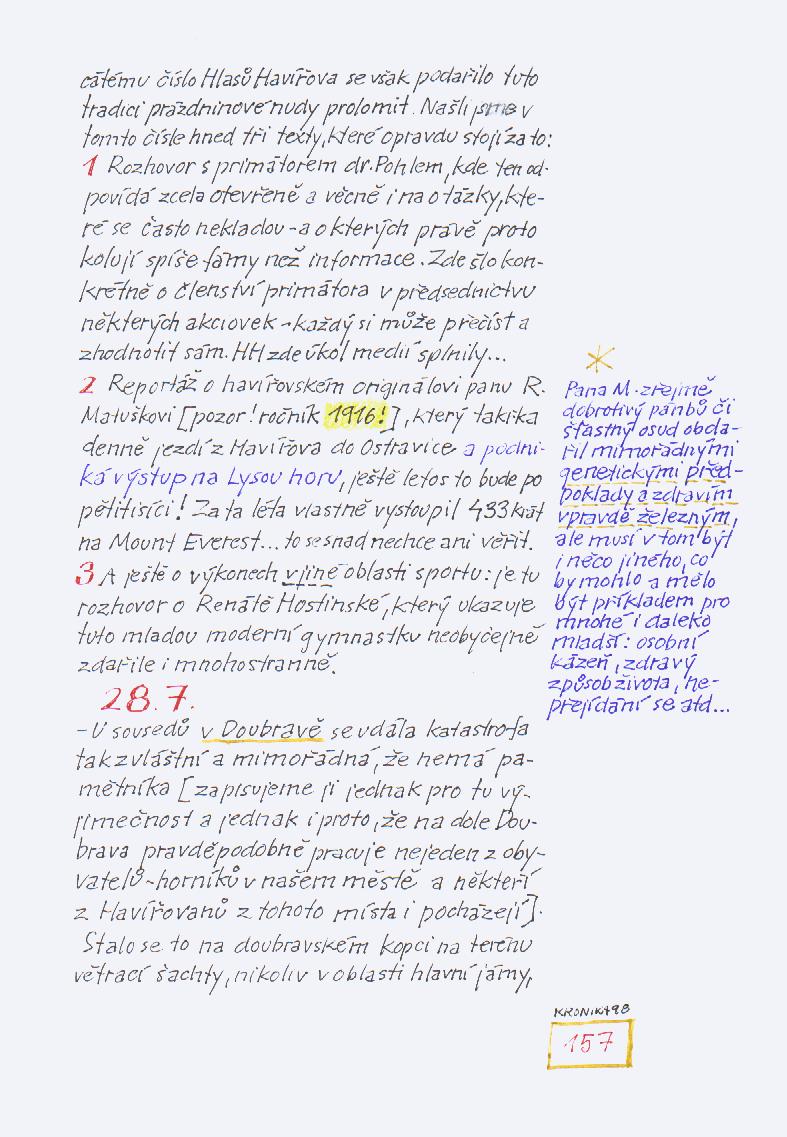 cátému číslo Hlasů Havířova se však podařilo tuto
tradici prázdninové nudy prolomit. Našli jsme v
tomto čísle hned tři texty, které opravdu stojí za to:
1 Rozhovor s primátorem dr. Pohlem, kde ten od-
povídá zcela otevřeně a věcně i na otázky, kte-
ré se často nekladou - a o kterých právě proto
kolují spíše fámy než informace. Zde šlo kon-
krétně o členství primátora v předsednictvu
některých akciovek - každý si může přečíst a
zhodnotit sám. HH zde úkol medií splnily...
2 Reportáž o havířovském originálovi panu R.
Matuškovi [pozor! ročník 1916!], který takřka
denně jezdí z Havířova do Ostravice a podni-
ká výstup na Lysou horu, ještě letos to bude po
pětitisící! Za ta léta vlastně vystoupil 433 krát
na Mount Everest... to se snad nechce ani věřit.
3 A ještě o výkonech v jiné oblasti sportu: je tu
rozhovor o Renátě Hostinské, který ukazuje
tuto mladou moderní gymnastku neobyčejně
zdařile i mnohostranně.
28.7.
- U sousedů v Doubravě se udála katastrofa
tak zvláštní a mimořádná, že nemá pa-
mětníka [zapisujeme ji jednak pro tu vý-
jimečnost a jednak i proto, že na dole Dou-
brava pravděpodobně pracuje nejeden z oby-
vatelů - horníků v našem městě a někteří
z Havířovanů z tohoto místa i pocházejí].
Stalo se to na doubravském kopci na terénu
větrací šachty, nikoliv v oblasti hlavní jámy,
*
Pana M. zřejmě
dobrotivý pánbů či
šťastný osud obda-
řil mimořádnými
genetickými před-
poklady a zdravím
vpravdě železným,
ale musí v tom být
i něco jiného, co
by mohlo a mělo
být příkladem pro
mnohé i daleko
mladší: osobní
kázeň, zdravý
způsob života, ne-
přejídání se atd...
KRONIKA 98
157